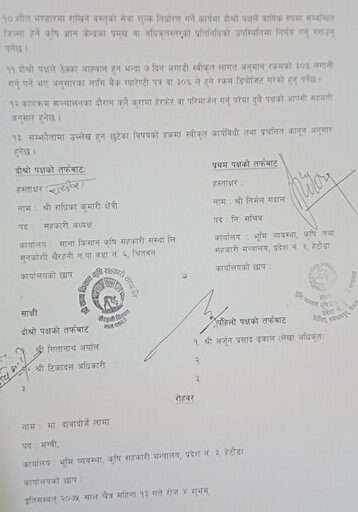 १०.शीत भण्डारमा राखिने वस्तुको सेवा शुल्क निर्धारण गर्ने कार्यमा दोश्रो पक्षले वार्षिक रूपमा सम्बन्धित
जिल्ला हेर्ने कृषि ज्ञान केन्द्रका प्रमुख वा अधिकृतस्तरको प्रतिनिधिको उपस्थितिमा निर्णय गर्नु गराउनु
पर्नेछ ।
११.दोश्रो पक्षले ठेक्का आव्हान हुन भन्दा ७ दिन अगाडी स्वीकृत लागत अनुमान रकमको ३०% नगानी
गर्नु पर्ने भए अनुसारका लागि बैंक ग्यारेण्टी पत्र वा ३०% ले हुने रकम डिपोजिट गरेको हुनु पर्नेछ ।
१२.कार्यक्रम सञ्चालनका दौरान कुनै कुरामा हेरफेर वा परिमार्जन गर्नु परेमा दुवै पक्षको आपसी सहमती
अनुसार हुनेछ ।
१३. सम्झौतामा उल्लेख हुन छुटेका विषयको हकमा स्वीकृत कार्यविधी तथा प्रचलित कानुन अनुसार
हुनेछ ।
दोश्रो पक्षको तर्फबाट
हस्ताक्षर :
नाम : श्री राधिका कुमारी क्षेत्री
पद : सहकारी अध्यक्ष
कार्यालय : साना किसान कृषि सहकारी संस्था लि.
सुनकोशी खैरहनी न.पा वडा नं. ६, चितवन
कार्यालयको छाप
प्रथम पक्षको तर्फबाट
हस्ताक्षर :
नाम : श्री निर्मल गदाल
पद : नि. सचिव
कार्यालय : भूमि व्यवस्था, कृषि तथा
सहकारी मन्त्रालय, प्रदेश नं. ३, हेटौडा
कार्यालयको छाप :
साक्षी
दोश्रो पक्षको तर्फबाट
श्री गितानाथ अर्याल
श्री टिकादल अधिकारी
३
पहिलो पक्षको तर्फबाट
१. श्री अर्जुन प्रसाद ढकाल (लेखा अधिकृत)
२
३.
रोहवर
नाम : मा. दावादोर्जे लामा
पद : मन्त्री,
कार्यालय : भूमि व्यवस्था, कृषि सहकारी मन्त्रालय, प्रदेश नं. ३, हेटौडा
कार्यालयको छाप :
इतिसम्वत् २०७५ साल चैत्र महिना १३ गते रोज ४ शुभम्